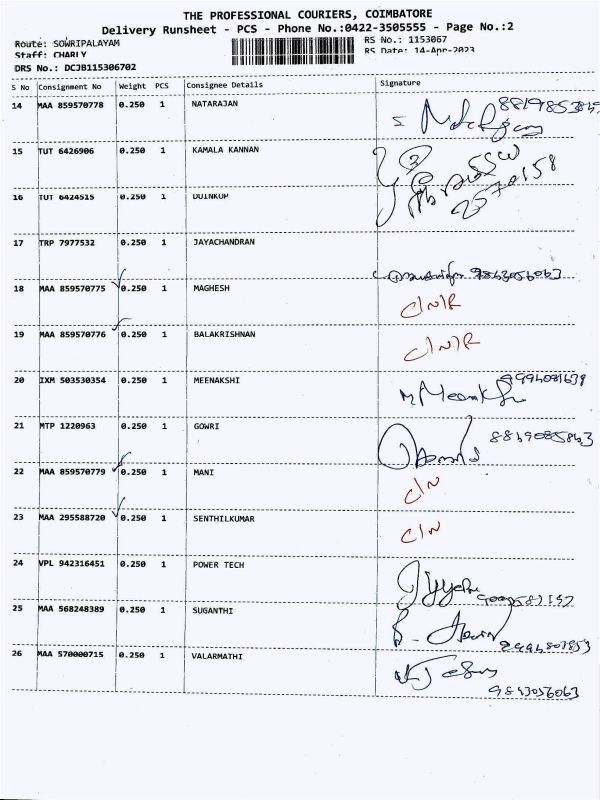 THE PROFESSIONAL COURIERS, COIMBATORE
Delivery Runsheet - PCS - Phone No.:0422-3505555 - Page No.:2
Route: SOWRIPALAYAM RS No.: 1153067
Staff: CHARLY RS Date: 14-Apr-2023
DRS No.: DCJB115306702
S No Consignment No Weight PCS Consignee Details Signature
14 MAA 859570778 0.250 1 NATARAJAN
15 TUT 6426906 0.250 1 KAMALA KANNAN
16 TUT 6424515 0.250 1 DOINKUP
17 TRP 7977532 0.250 1 JAYACHANDRAN
9843056063
18 MAA 859570775 0.250 1 MAGHESH C/N/R
19 MAA 859570776 0.250 1 BALAKRISHNAN C/N/R
20 IXM 503530354 0.250 1 MEENAKSHI
21 MTP 1220963 0.250 1 GOWRI
22 MAA 859570779 0.250 1 MANI C/N
23 MAA 295588720 0.250 1 SENTHILKUMAR C/N
24 VPL 942316451 0.250 1 POWER TECH
25 MAA 568248389 0.250 1 SUGANTHI
26 MAA 570000715 0.250 1 VALARMATHI
9843056063